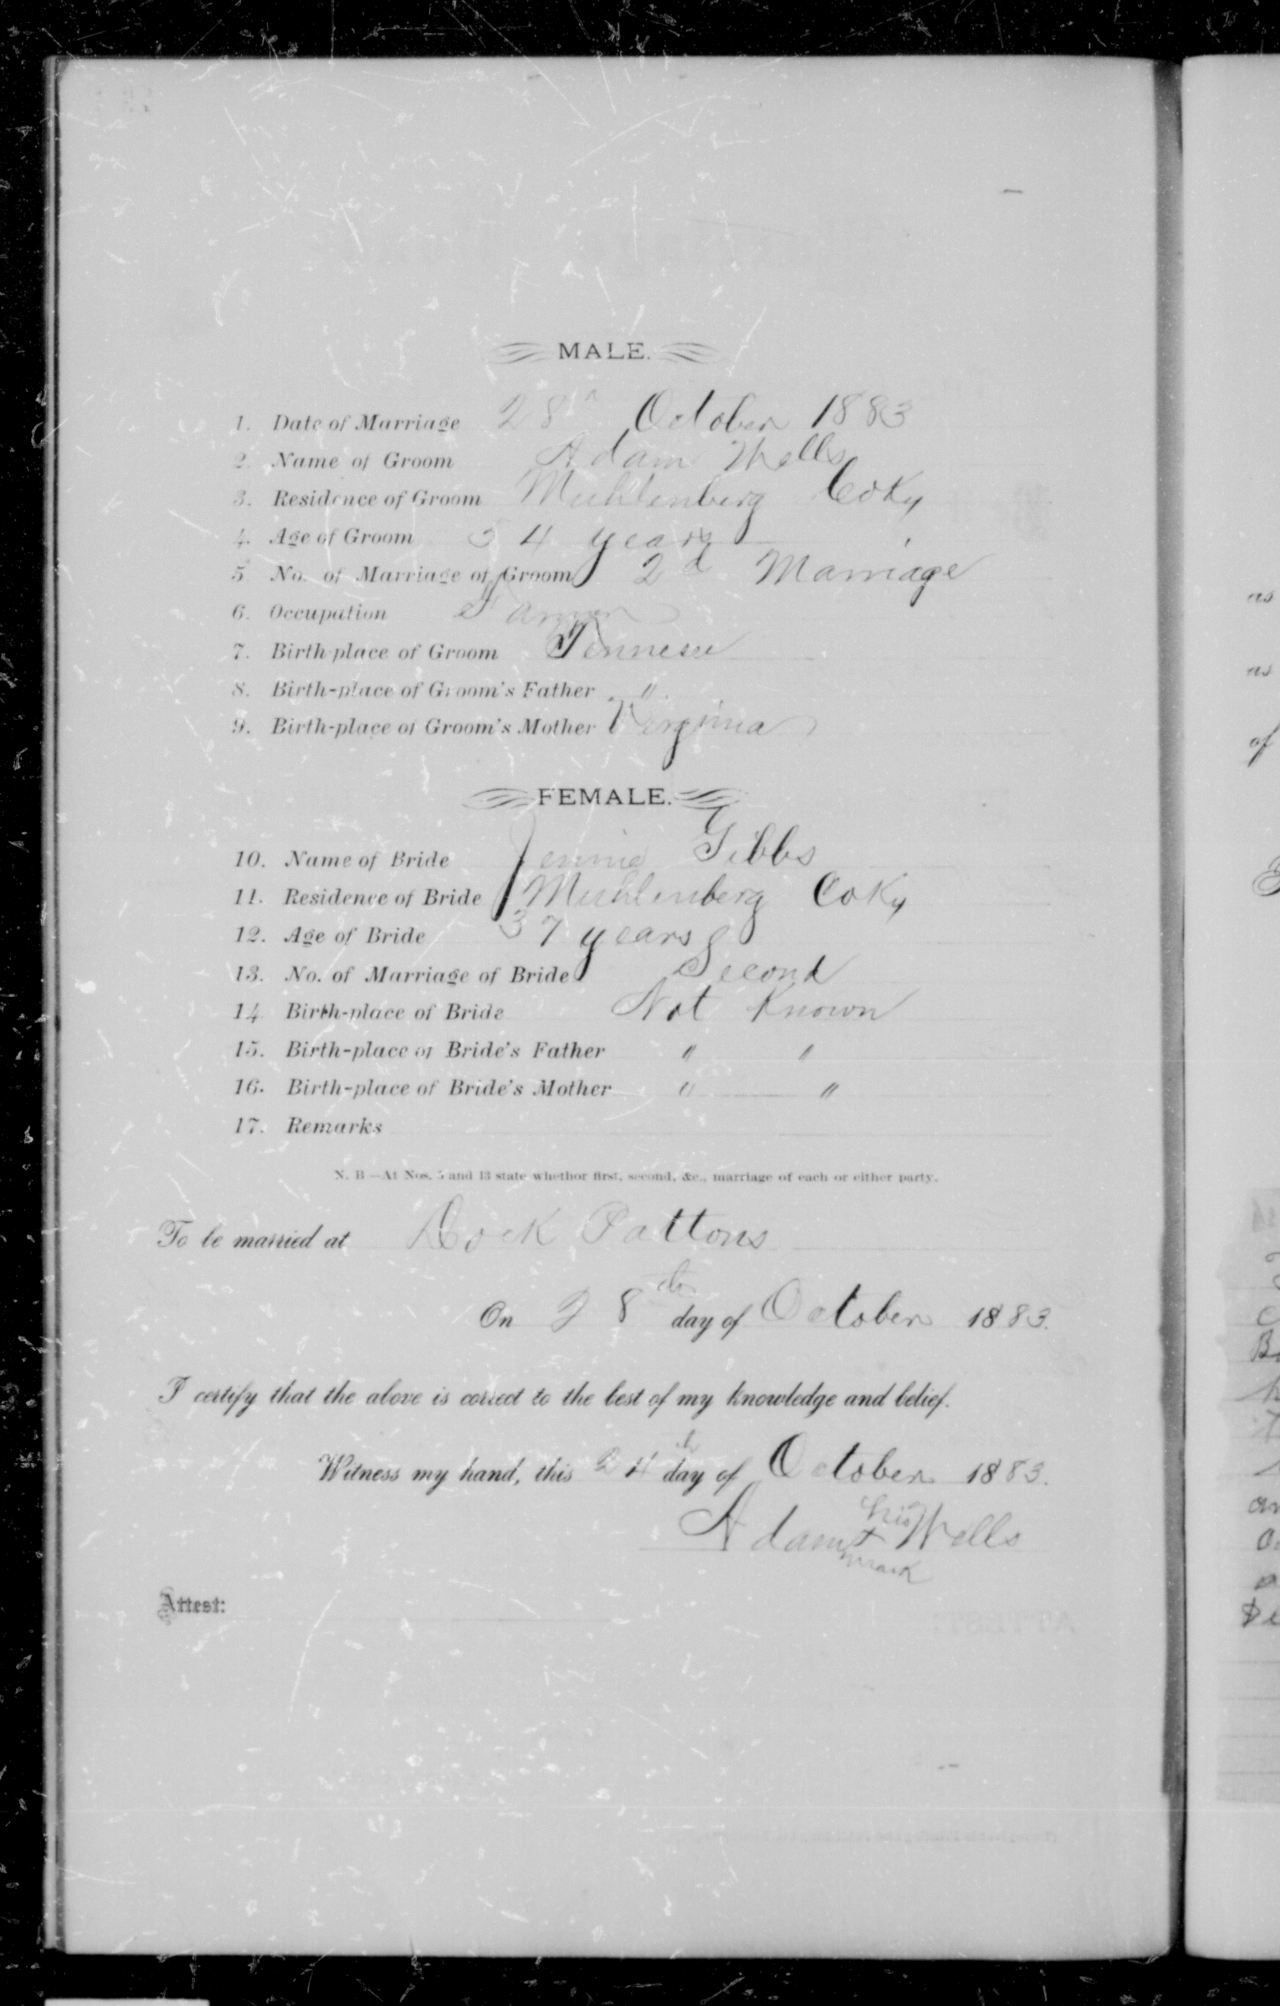 MALE.
1. Date of Marriage 28th October 1883
2. Name of Groom Adam Wells
3. Residence of Groom Muhlenberg Co Ky
4. Age of Groom 54 years
5. No. of Marriage of Groom 2d Marriage
6. Occupation Farmer
7. Birth-place of Groom Tennesee
8. Birth-place of Groom's Father "
9. Birth-place of Groom's Mother Virginia
FEMALE.
10. Name of Bride Jennie Gibbs
11. Residence of Bride Muhlenberg Co Ky
12. Age of Bride 37 years
13. No. of Marriage of Bride Second
14. Birth-place of Bride Not Known
15. Birth-place of Bride's Father " "
16. Birth-place of Bride's Mother " "
17. Remarks
N. B.—At Nos. 5 and 13 state whether first, second, &c., marriage of each or either party.
To be married at Dock Pattons
On 28th day of October 1883.
I certify that the above is correct to the best of my knowledge and belief.
Witness my hand, this 24th day of October 1883.
his
Adam + Wells
mark
Attest:
as
as
of